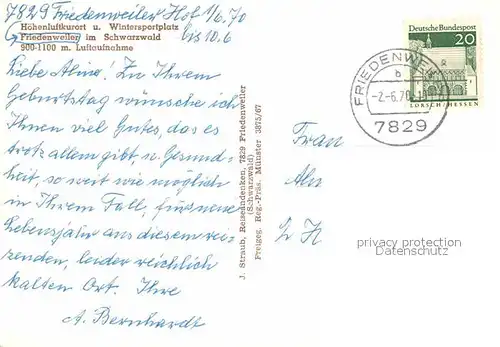 7829 Friedenweiler Hof 1/6.70
bis 10.6
Höhenluftkurort u. Wintersportplatz
Friedenweiler im Schwarzwald
900-1100 m. Luftaufnahme
Liebe Aline! Zu Ihrem
Geburtstag wünsche ich
Ihnen viel Gutes, das es
trotz allem gibt u. Gesund-
heit, so weit wie möglich
in Ihrem Fall, fürs neue
Lebensjahr aus diesem rei-
zenden, leider reichlich
kalten Ort. Ihre
A. Bernhardt
J. Straub, Reiseandenken, 7829 Friedenweiler
(Schwarzwald)
Freigeg. Reg.-Präs. Münster 3875/67
Deutsche Bundespost
20
LORSCH/HESSEN
FRIEDENWE
b
-2.-6.70-1
7829
Frau
Aln
Z H
privacy protection
Datenschutz